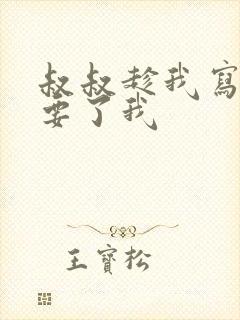 叔叔趁我寫
要了我
王寶松